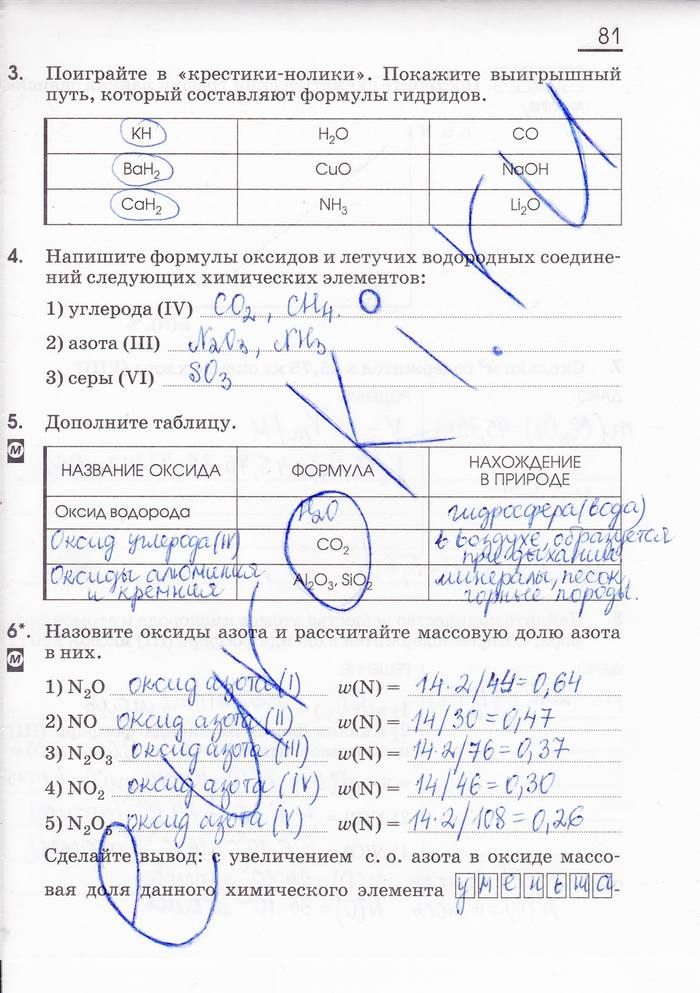 81
3. Поиграйте в «крестики-нолики». Покажите выигрышный
путь, который составляют формулы гидридов.
KH H₂O CO
BaH₂ CuO NaOH
CaH₂ NH₃ Li₂O
4. Напишите формулы оксидов и летучих водородных соедине-
ний следующих химических элементов:
1) углерода (IV) CO₂, CH₄.
2) азота (III) N₂O₃, NH₃
3) серы (VI) SO₃
5. Дополните таблицу.
М
НАЗВАНИЕ ОКСИДА ФОРМУЛА НАХОЖДЕНИЕ
В ПРИРОДЕ
Оксид водорода H₂O гидросфера (вода)
Оксид углерода (IV) CO₂ в воздухе, образуется
при дыхании
Оксиды алюминия Al₂O₃, SiO₂ минералы, песок,
и кремния горные породы.
6*. Назовите оксиды азота и рассчитайте массовую долю азота
М в них.
1) N₂O оксид азота (I) w(N) = 14·2/44=0,64
2) NO оксид азота (II) w(N) = 14/30=0,47
3) N₂O₃ оксид азота (III) w(N) = 14·2/76=0,37
4) NO₂ оксид азота (IV) w(N) = 14/46=0,30
5) N₂O₅ оксид азота (V) w(N) = 14·2/108=0,26
Сделайте вывод: с увеличением с. о. азота в оксиде массо-
вая доля данного химического элемента уменьша-